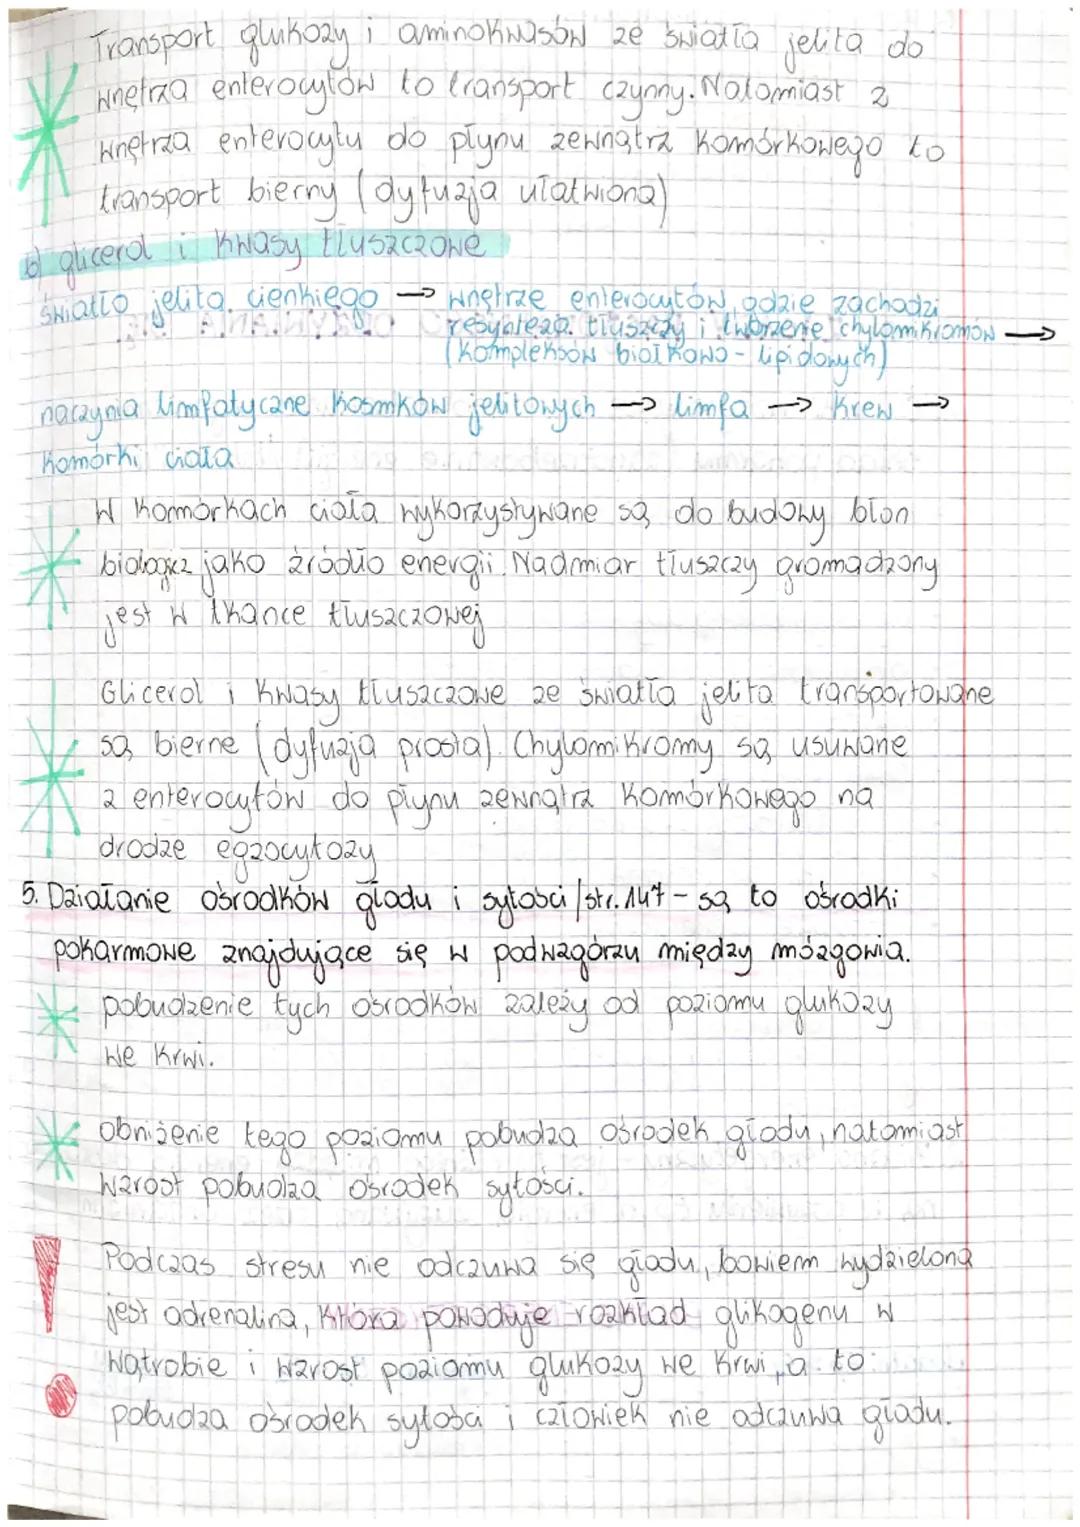 Transport glukozy i aminokwasów ze światła jelita do
wnętrza enterocytów to transport czynny. Natomiast z
wnętrza enterocytu do płynu zewnątrz komórkowego to
transport bierny (dyfuzja ułatwiona)
b) glicerol i kwasy tłuszczowe
światło jelita cienkiego → wnętrze enterocytów, gdzie zachodzi
resynteza tłuszczy i tworzenie chylomikromów →
(kompleksów białkowo - lipidowych)
naczynia limfatyczne kosmków jelitowych → limfa → krew →
komórki ciała
W komórkach ciała wykorzystywane są do budowy błon
biologicz jako źródło energii. Nadmiar tłuszczy gromadzony
jest w tkance tłuszczowej
Glicerol i kwasy tłuszczowe ze światła jelita transportowane
są bierne (dyfuzja prosta). Chylomikromy są usuwane
z enterocytów do płynu zewnątrz komórkowego na
drodze egzocytozy
5. Działanie ośrodków głodu i sytości /str. 147 - są to ośrodki
pokarmowe znajdujące się w podwzgórzu między mózgowia.
pobudzenie tych ośrodków zależy od poziomu glukozy
we krwi.
obniżenie tego poziomu pobudza ośrodek głodu, natomiast
wzrost pobudza ośrodek sytości.
Podczas stresu nie odczuwa się głodu, bowiem wydzielona
jest adrenalina, która powoduje rozkład glikogenu w
wątrobie i wzrost poziomu glukozy we krwi, a to
pobudza ośrodek sytości i człowiek nie odczuwa głodu.